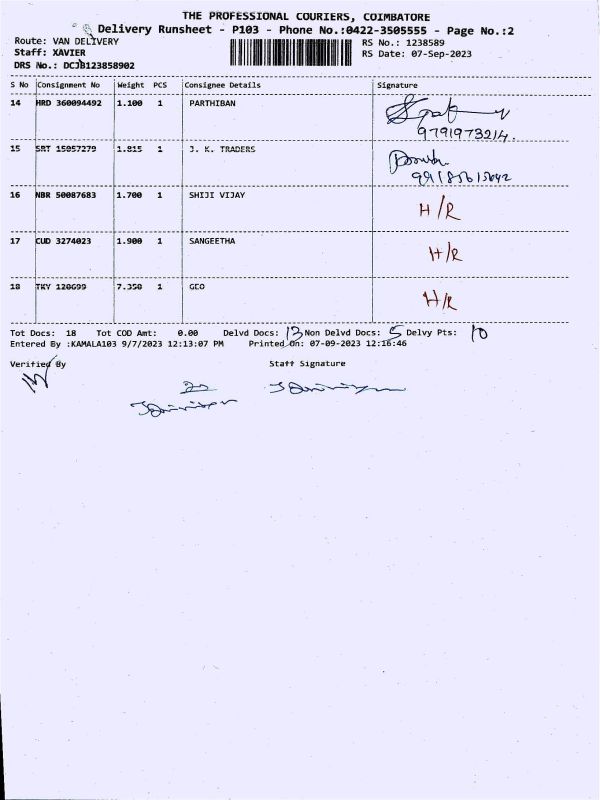 THE PROFESSIONAL COURIERS, COIMBATORE
Delivery Runsheet - P103 - Phone No.:0422-3505555 - Page No.:2
Route: VAN DELIVERY RS No.: 1238589
Staff: XAVIER RS Date: 07-Sep-2023
DRS No.: DCJB123858902
S No Consignment No Weight PCS Consignee Details Signature
14 HRD 360094492 1.100 1 PARTHIBAN
9791973214.
15 SRT 15057279 1.815 1 J. K. TRADERS
16 NBR 50087683 1.700 1 SHIJI VIJAY H/R
17 CUD 3274023 1.900 1 SANGEETHA H/R
18 TKY 120699 7.350 1 GEO H/R
Tot Docs: 18 Tot COD Amt: 0.00 Delvd Docs: 13 Non Delvd Docs: 5 Delvy Pts: 10
Entered By :KAMALA103 9/7/2023 12:13:07 PM Printed On: 07-09-2023 12:16:46
Verified By Staff Signature